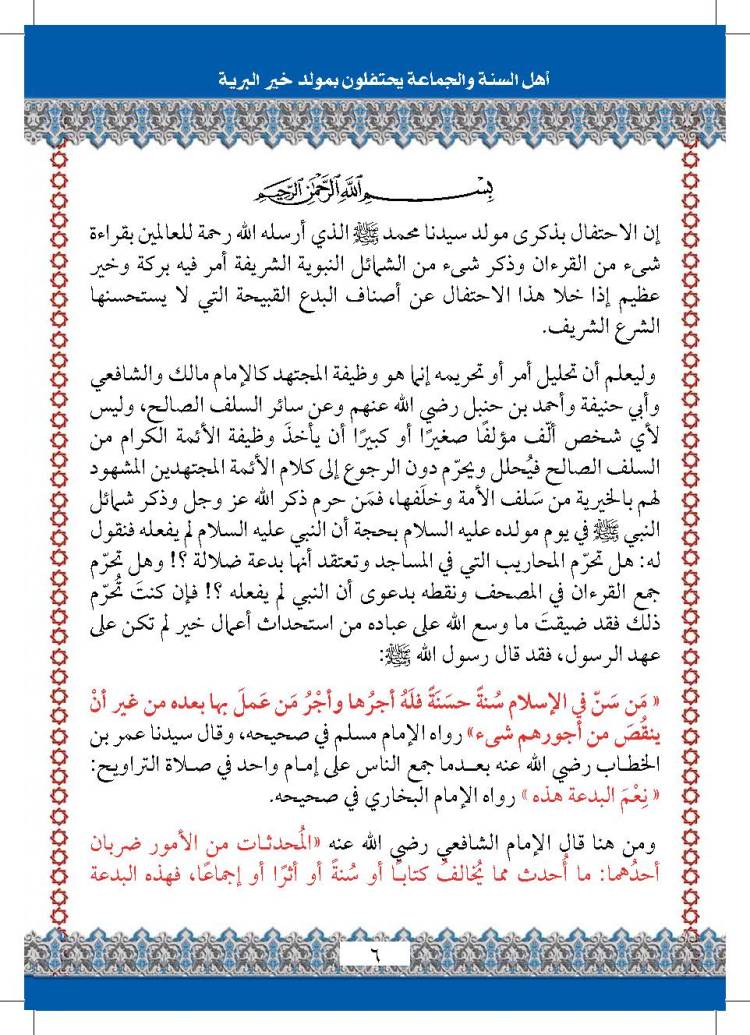 أهل السنة والجماعة يحتفلون بمولد خير البرية
بِسْمِ اللَّهِ الرَّحْمٰنِ الرَّحِيمِ
إن الاحتفال بذكرى مولد سيدنا محمد ﷺ الذي أرسله الله رحمة للعالمين بقراءة
شىء من القرءان وذكر شىء من الشمائل النبوية الشريفة أمر فيه بركة وخير
عظيم إذا خلا هذا الاحتفال عن أصناف البدع القبيحة التي لا يستحسنها
الشرع الشريف.
وليعلم أن تحليل أمر أو تحريمه إنما هو وظيفة المجتهد كالإمام مالك والشافعي
وأبي حنيفة وأحمد بن حنبل رضي الله عنهم وعن سائر السلف الصالح، وليس
لأي شخص ألّف مؤلفًا صغيرًا أو كبيرًا أن يأخذَ وظيفة الأئمة الكرام من
السلف الصالح فيُحلل ويحرّم دون الرجوع إلى كلام الأئمة المجتهدين المشهود
لهم بالخيرية من سَلف الأمة وخلَفها، فمَن حرم ذكر الله عز وجل وذكر شمائل
النبي ﷺ في يوم مولده عليه السلام بحجة أن النبي عليه السلام لم يفعله فنقول
له: هل تحرّم المحاريب التي في المساجد وتعتقد أنها بدعة ضلالة ؟! وهل تحرّم
جمع القرءان في المصحف ونقطه بدعوى أن النبي لم يفعله ؟! فإن كنتَ تُحرّم
ذلك فقد ضيقتَ ما وسع الله على عباده من استحداث أعمال خير لم تكن على
عهد الرسول، فقد قال رسول الله ﷺ:
« مَن سَنّ في الإسلام سُنةً حسَنَةً فلَهُ أجرُها وأجْرُ مَن عَملَ بها بعده من غير أنْ
ينقُصَ من أجورهم شىء» رواه الإمام مسلم في صحيحه، وقال سيدنا عمر بن
الخطاب رضي الله عنه بعدما جمع الناس على إمام واحد في صلاة التراويح:
« نِعْمَ البدعة هذه » رواه الإمام البخاري في صحيحه.
ومن هنا قال الإمام الشافعي رضي الله عنه «المُحدثات من الأمور ضربان
أحدُهما: ما أُحدث مما يُخالفُ كتابًا أو سُنةً أو أثرًا أو إجماعًا، فهذه البدعة
٦